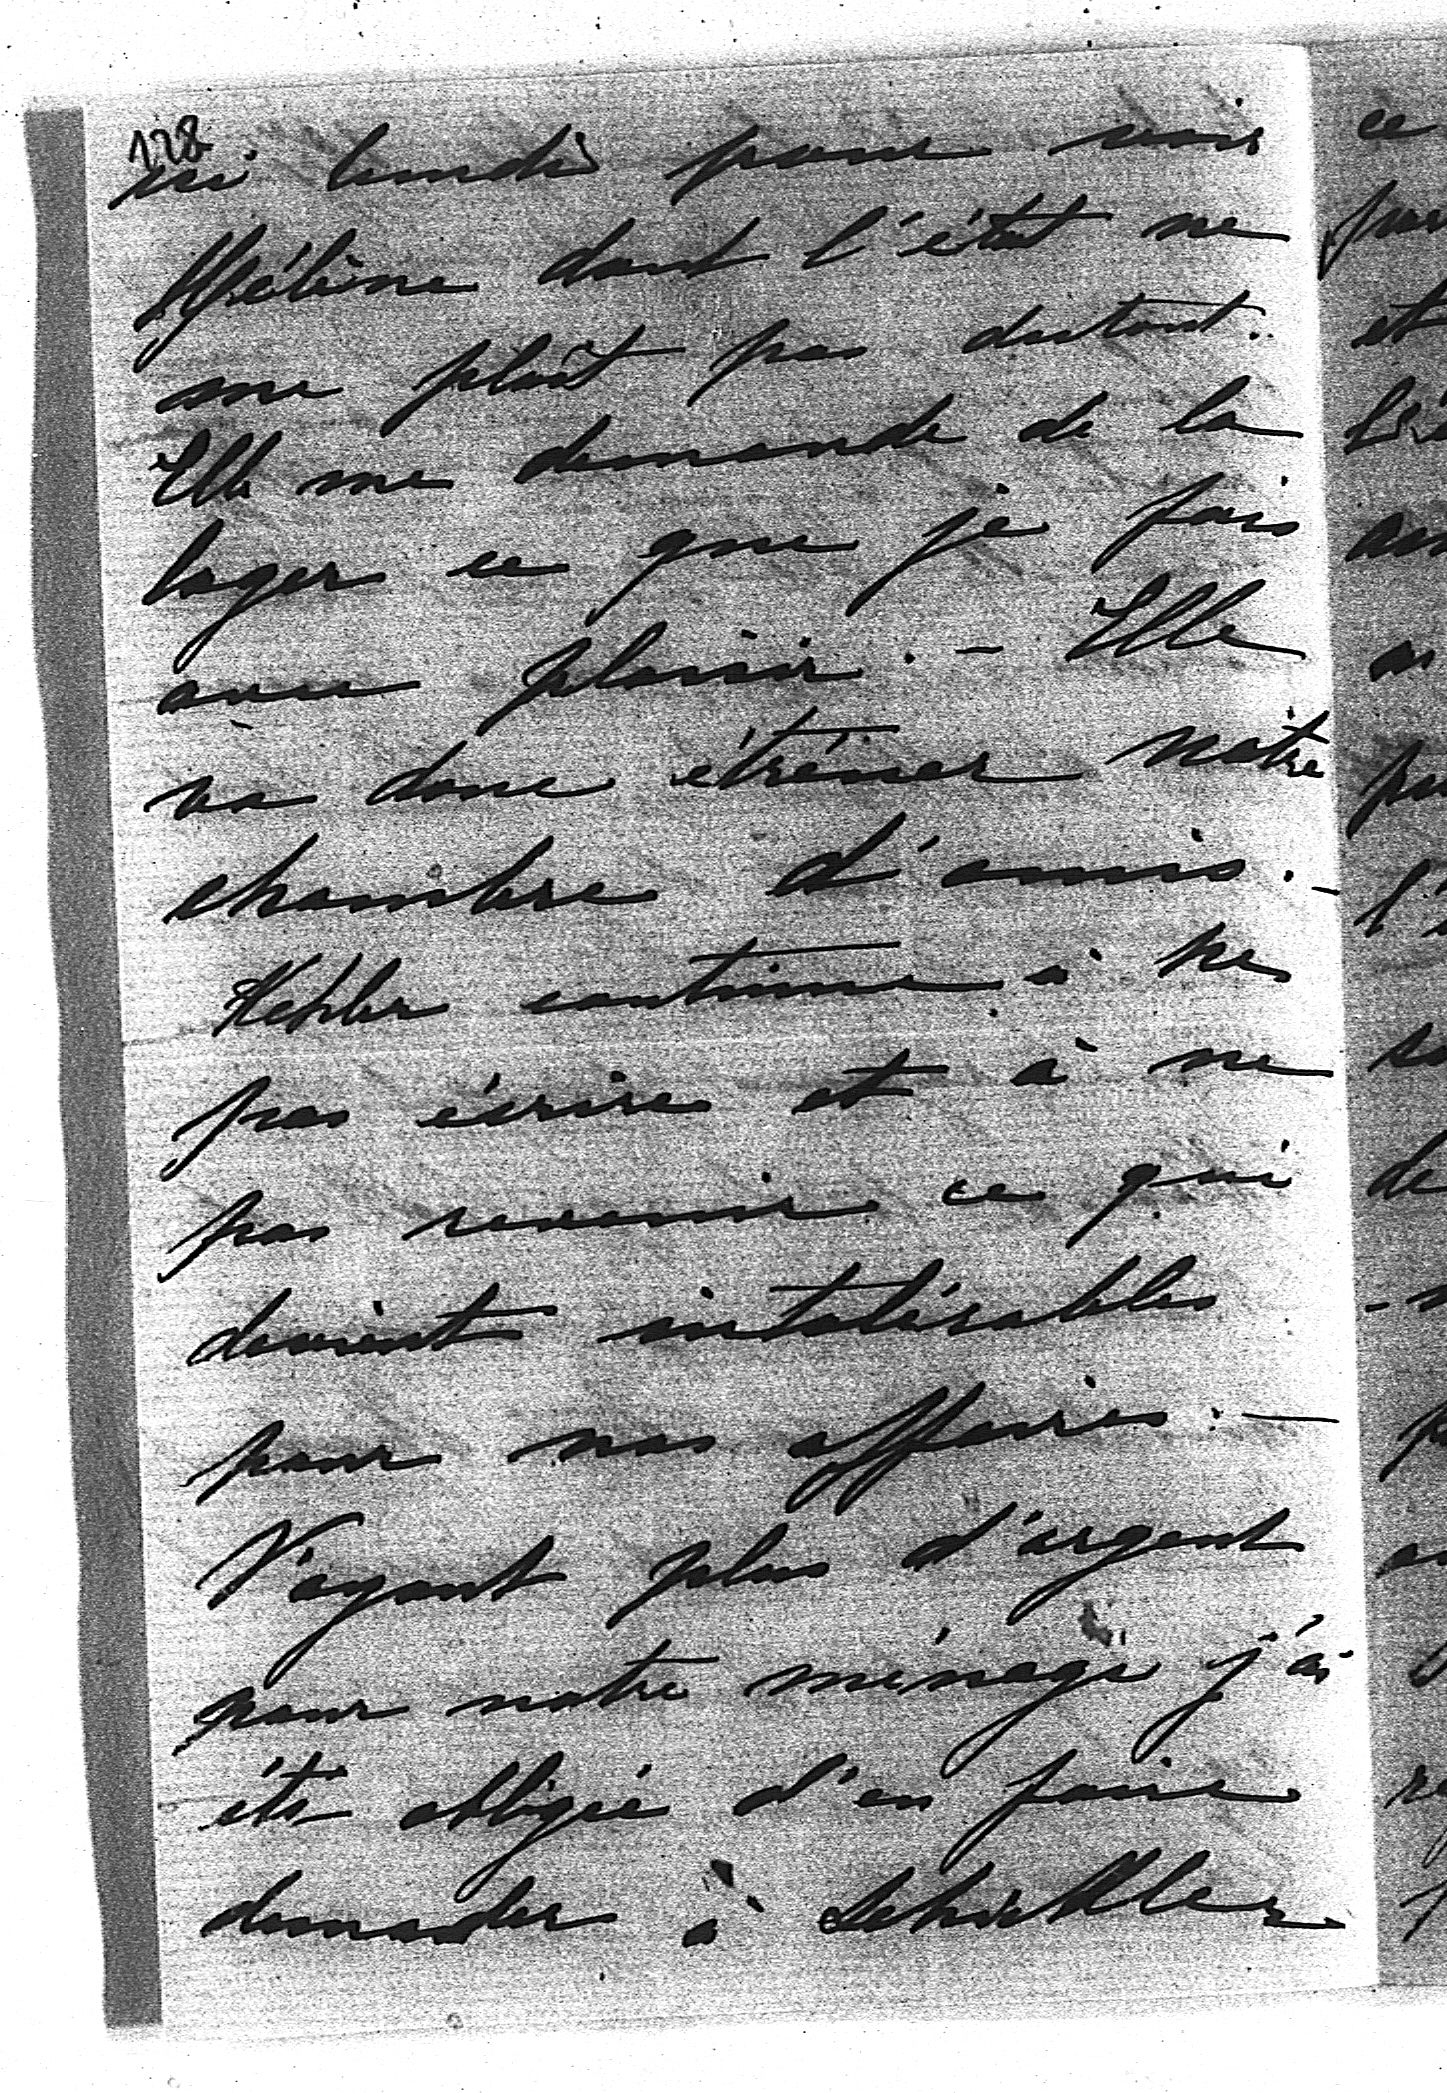 128
ici lundi pour voir
Hélène dont l'état ne
me plaît pas du tout.
Elle me demande de la
loger ce que je fais
avec plaisir. - Elle
va donc étrenner notre
chambre d'amis. -
Kepler continue à ne
pas écrire et à ne
pas revenir ce qui
devient intolérable
pour nos affaires. -
N'ayant plus d'argent
pour notre ménage j'ai
été obligé d'en faire
demander à Schickler